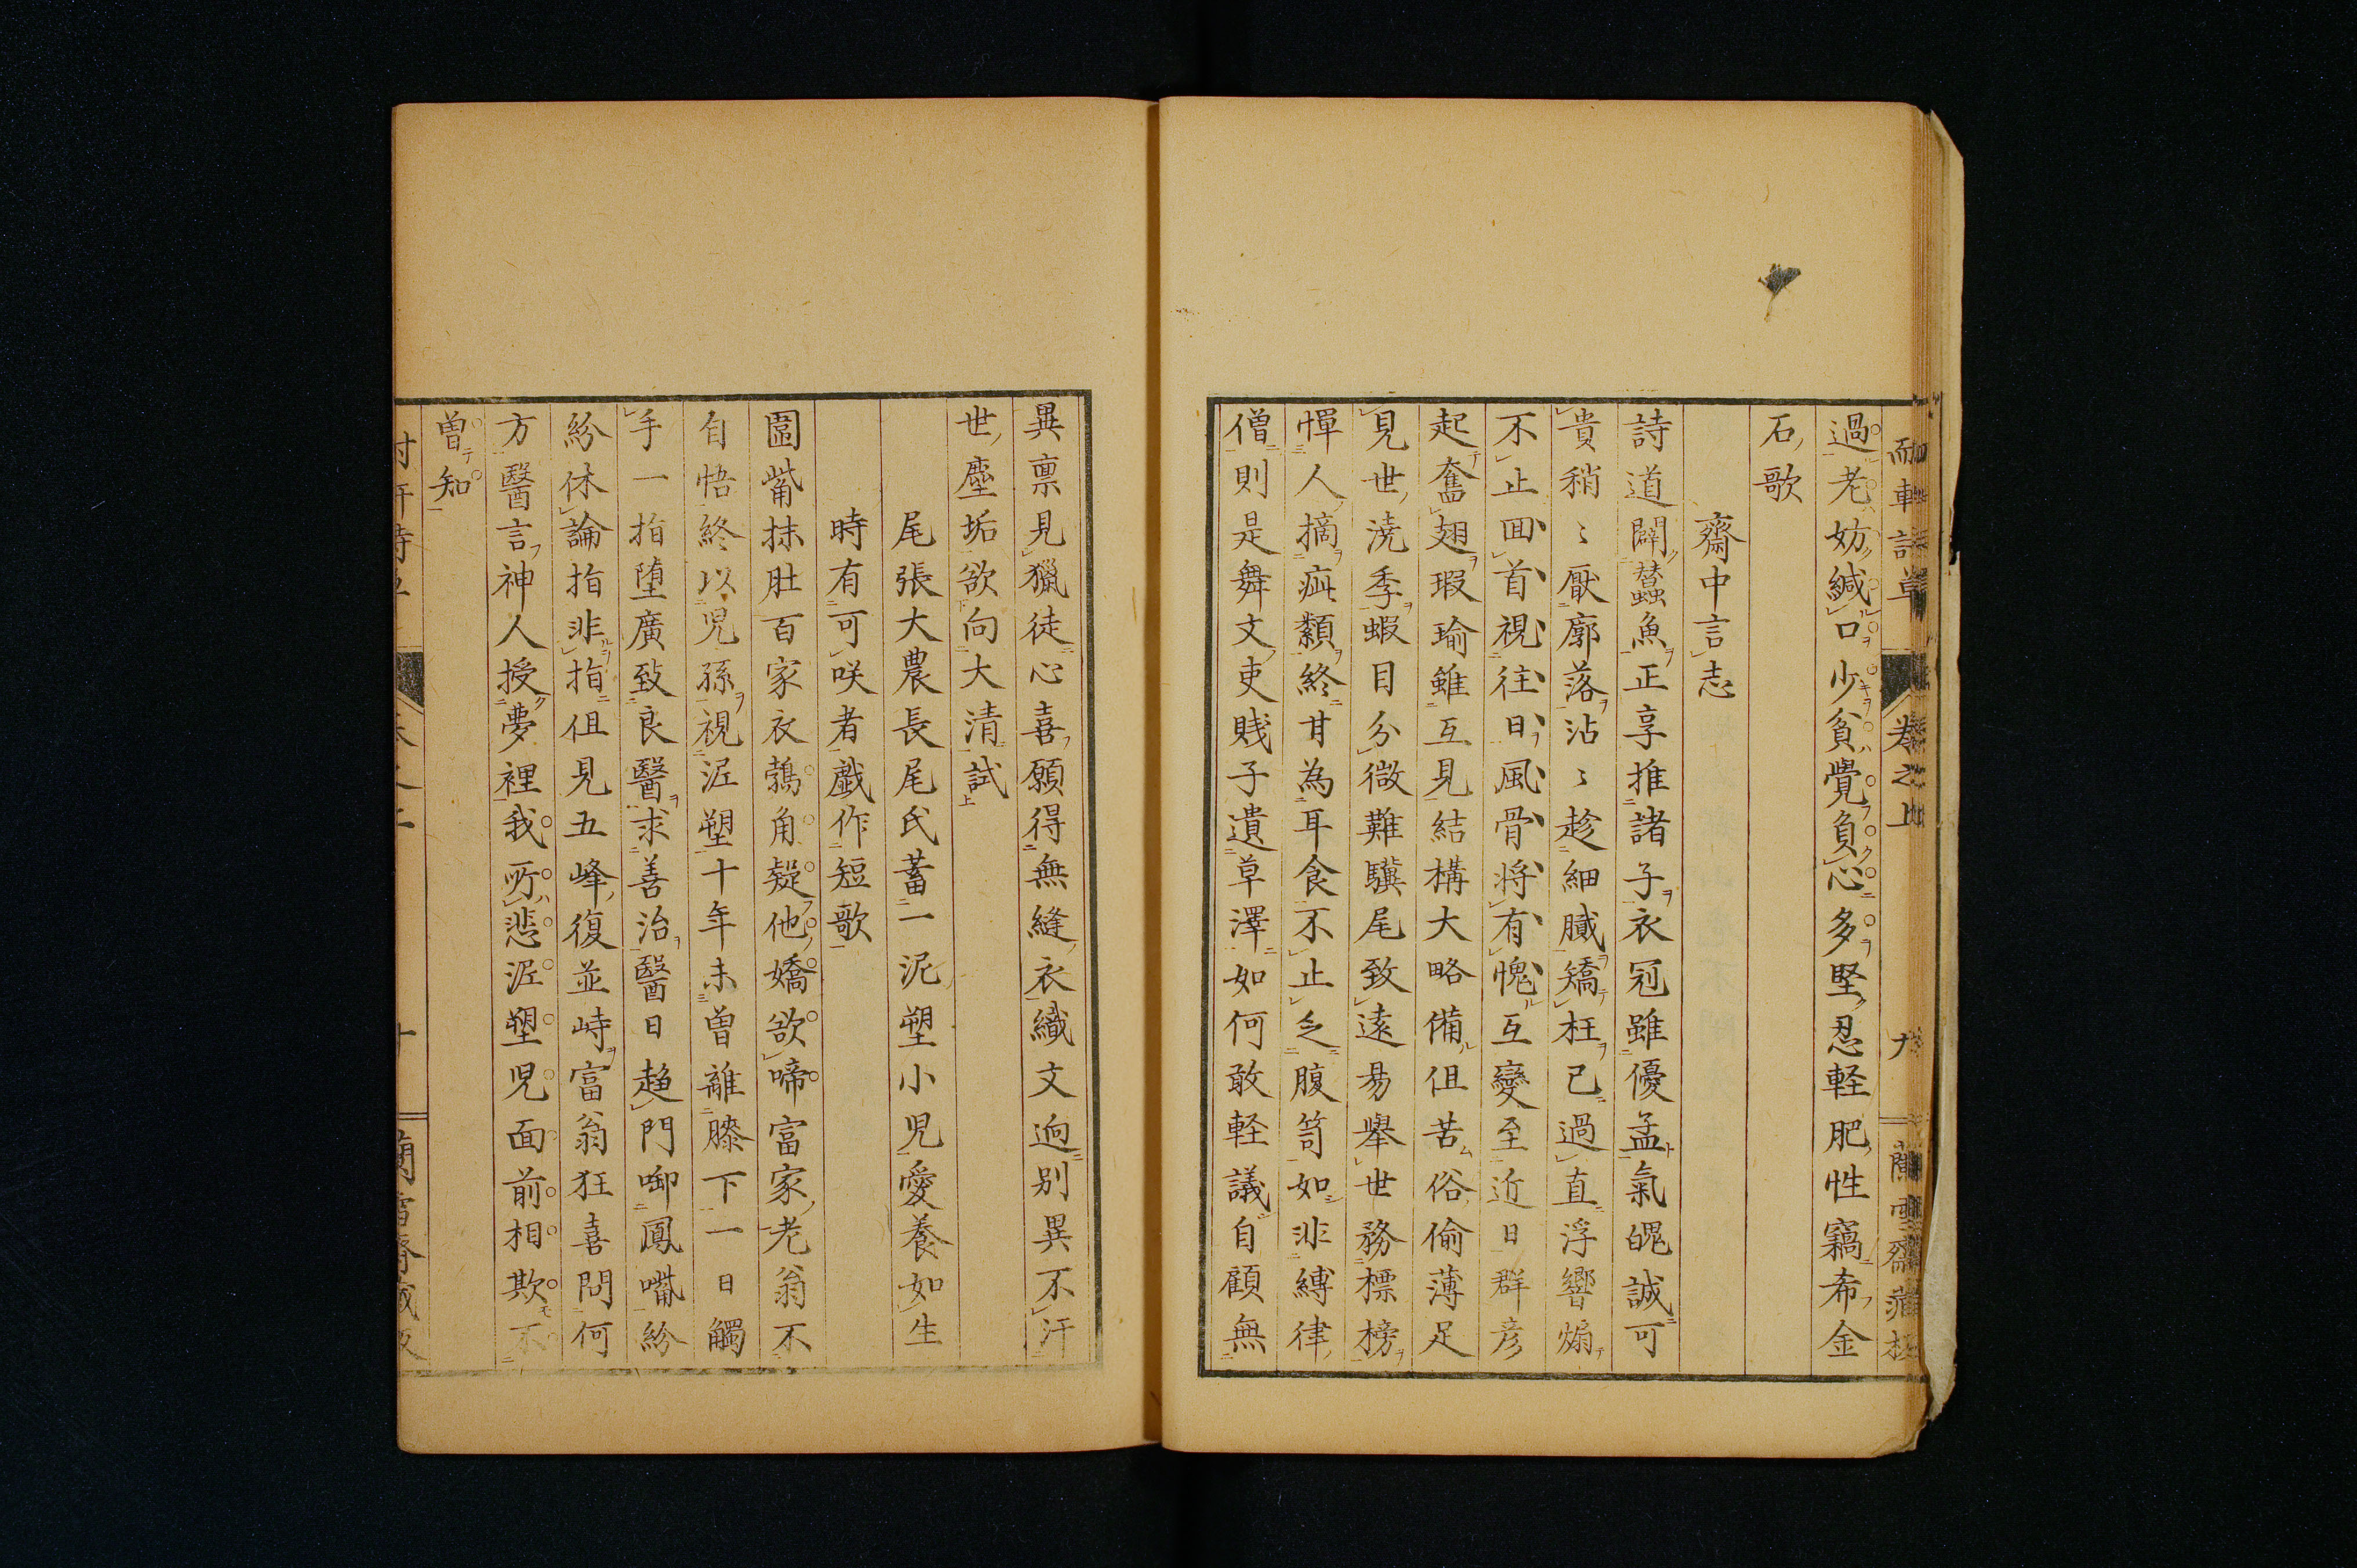 耐軒詩草 卷之上 九
過老妨緘口少貧覺負心多堅忍軽肥性竊希金
石歌
齋中言志
詩道闢蠶魚正享推諸子衣冠雖優孟氣魄誠可
貴稍〻厭廓落沾〻趁細膩矯枉已過直浮響煽
不止回首視往日風骨将有愧互變至近日群彦
起奮翅瑕瑜雖互見結構大略備但苦俗偷薄足
見世澆季蝦目分微難驥尾致遠易舉世務標榜
憚人摘疵纇終甘為耳食不止乏腹笥如非縛律
僧則是舞文吏賤子遺草澤如何敢軽議自顧無
異禀見獵徒心喜願得無縫衣織文逈别異不汗
世塵垢欲向大清試
尾張大農長尾氏蓄一泥塑小児愛養如生
時有可咲者戯作短歌
圖觜抹肚百家衣鵓角疑他嬌欲啼富家老翁不
自悟終以児孫視泥塑十年未曽離膝下一日觸
手一指堕廣致良醫求善治醫日趨門啣鳳嘴紛
紛休論指非指但見五峰復並峙富翁狂喜問何
方醫言神人授夢裡我所悲泥塑児面前相欺不
曽知